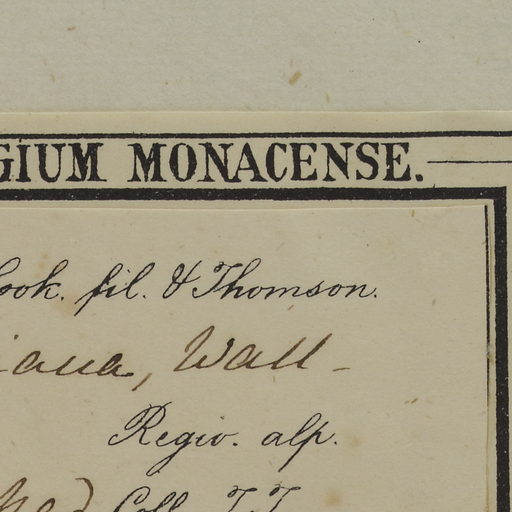 GIUM MONACENSE.
ook. fil. & Thomson.
iana, Wall
Regio. alp.
Coll. T. T.